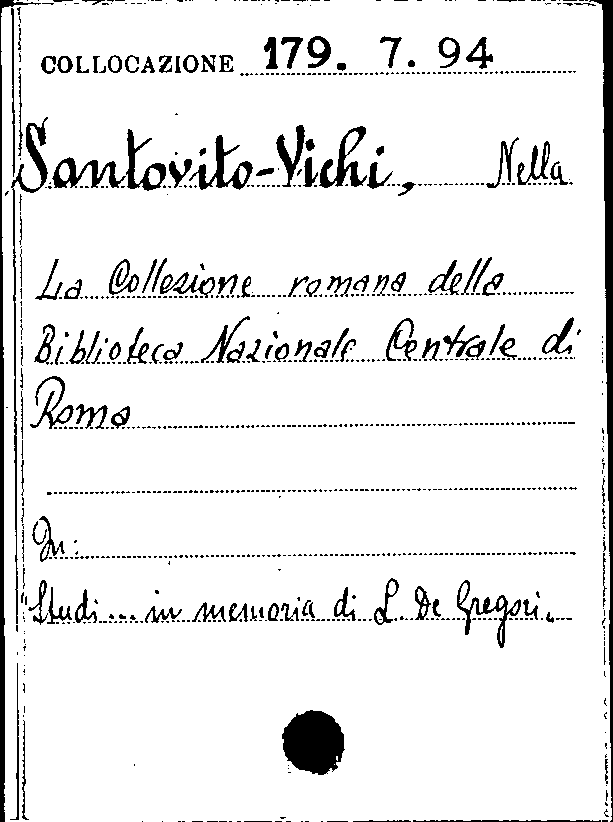 COLLOCAZIONE 179. 7. 94
Santovito-Vichi, Nella
La Collezione romana della
Biblioteca Nazionale Centrale di
Roma
In:
Studi... in memoria di L. De Gregori.